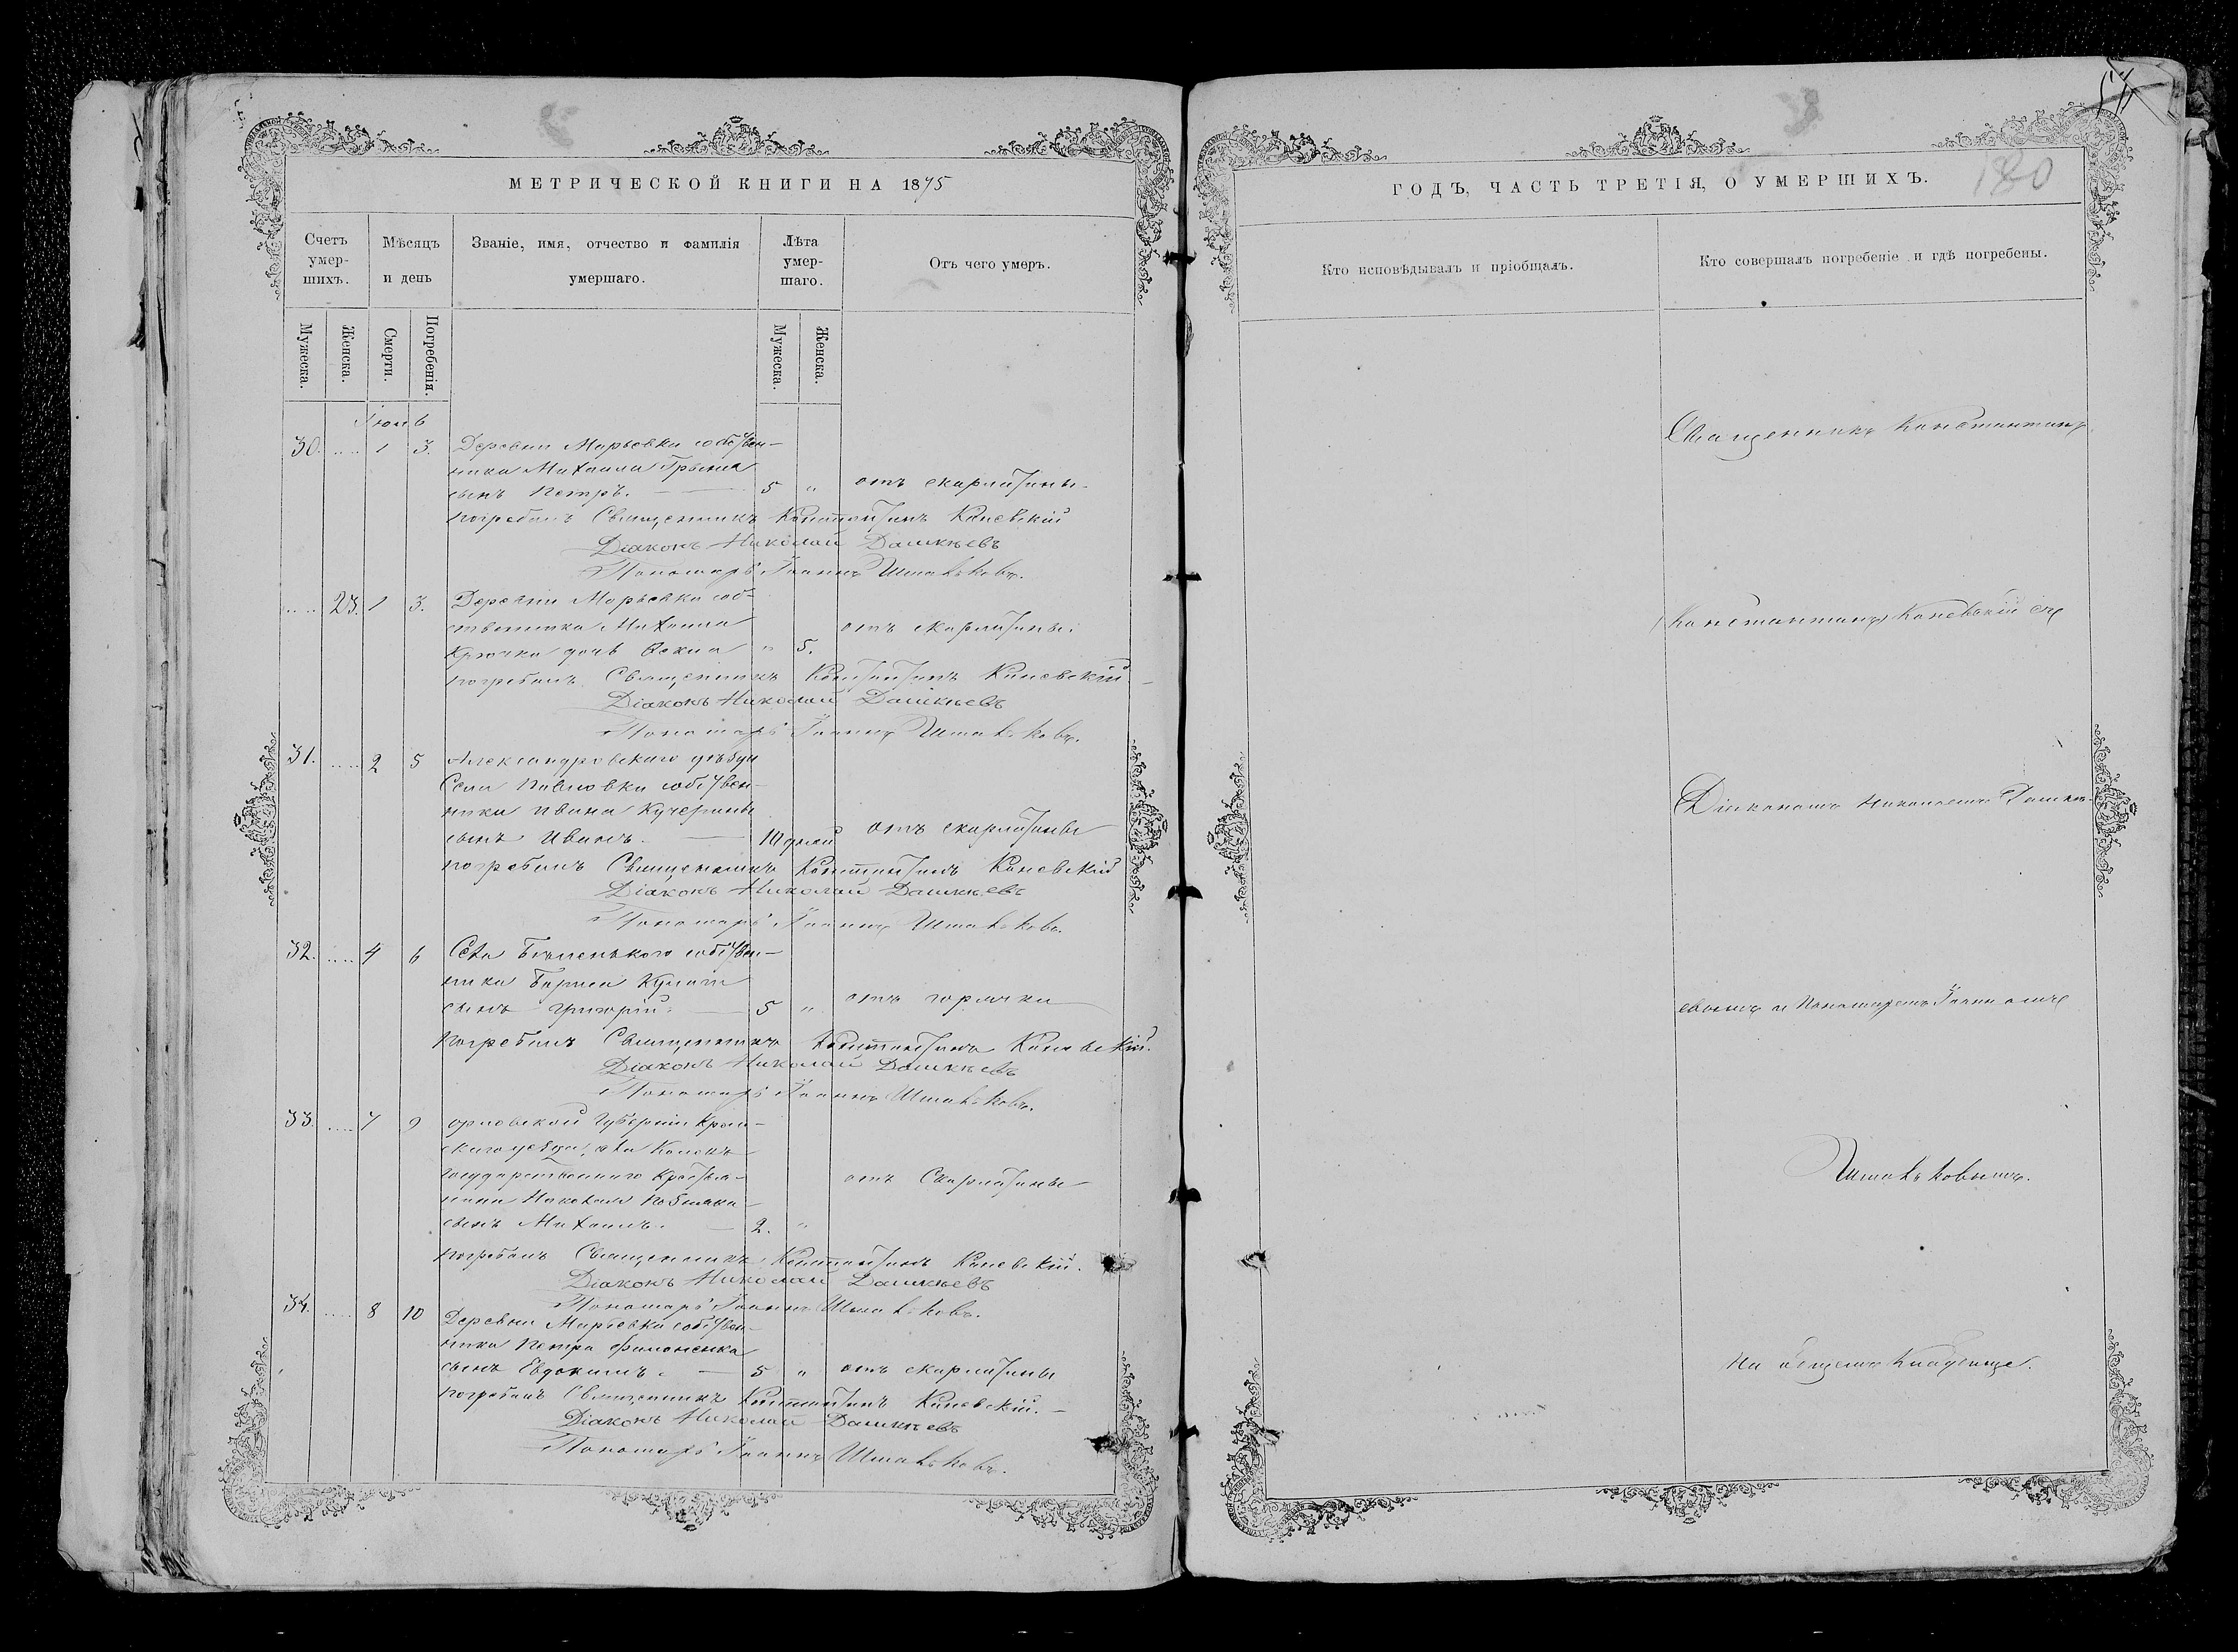 МЕТРИЧЕСКОЙ КНИГИ НА 1875
Счетъ умер-шихъ.
Мѣсяцъ и день
Званіе, имя, отчество и фамилія умершаго.
Лѣта умер-шаго.
Отъ чего умеръ.
Мужеска.
Женска.
Смерти.
Погребенія.
Мужеска.
Женска.
30. 1 3. Деревни Марьевки собствен-
ника Михаила
сынъ Петръ. 5 " отъ скарлатины.
погребалъ Священникъ Константинъ Каневскій
Діаконъ Николай Дашкѣевъ
Пономарь Іоаннъ
23. 1 3. Деревни Марьевки соб-
ственника Михаила
Крючка дочь " 5. отъ скарлатины.
погребалъ Священникъ Константинъ Каневскій
Діаконъ Николай Дашкѣевъ
Пономарь Іоаннъ
31. 2 5 Александровскаго уѣзда
Села Павловки собствен-
ника Ивана Кучерины
сынъ Иванъ. 10 дней отъ скарлатины
погребалъ Священникъ Константинъ Каневскій
Діаконъ Николай Дашкѣевъ
Пономарь Іоаннъ
32. 4 6 Села Бѣленькаго собствен-
ника
сынъ Григорій. 5 " отъ горячки
погребалъ Священникъ Константинъ Каневскій.
Діаконъ Николай Дашкѣевъ
Пономарь Іоаннъ
33. 7 9 Орловской Губерніи Кром-
скаго уѣзда, села
государственного Крестья-
нина
сынъ Михаилъ. 2. " отъ Скарлатины
погребалъ Священникъ Константинъ Каневскій.
Діаконъ Николай Дашкѣевъ
Пономарь Іоаннъ
34. 8 10 Деревни Марьевки собствен-
ника Петра Филоненка
сынъ Евдокимъ. 5 " отъ скарлатины
погребалъ Священникъ Константинъ Каневскій.
Діаконъ Николай Дашкѣевъ
Пономарь Іоаннъ
ГОДЪ, ЧАСТЬ ТРЕТІЯ, О УМЕРШИХЪ.
180
Кто исповѣдывалъ и пріобщалъ.
Кто совершалъ погребеніе и гдѣ погребены.
Священникъ Константинъ
Константинъ Каневскій съ
Діакономъ Николаемъ Дашкѣ-
евымъ и Пономаремъ Іоанномъ
На общемъ Кладбище.